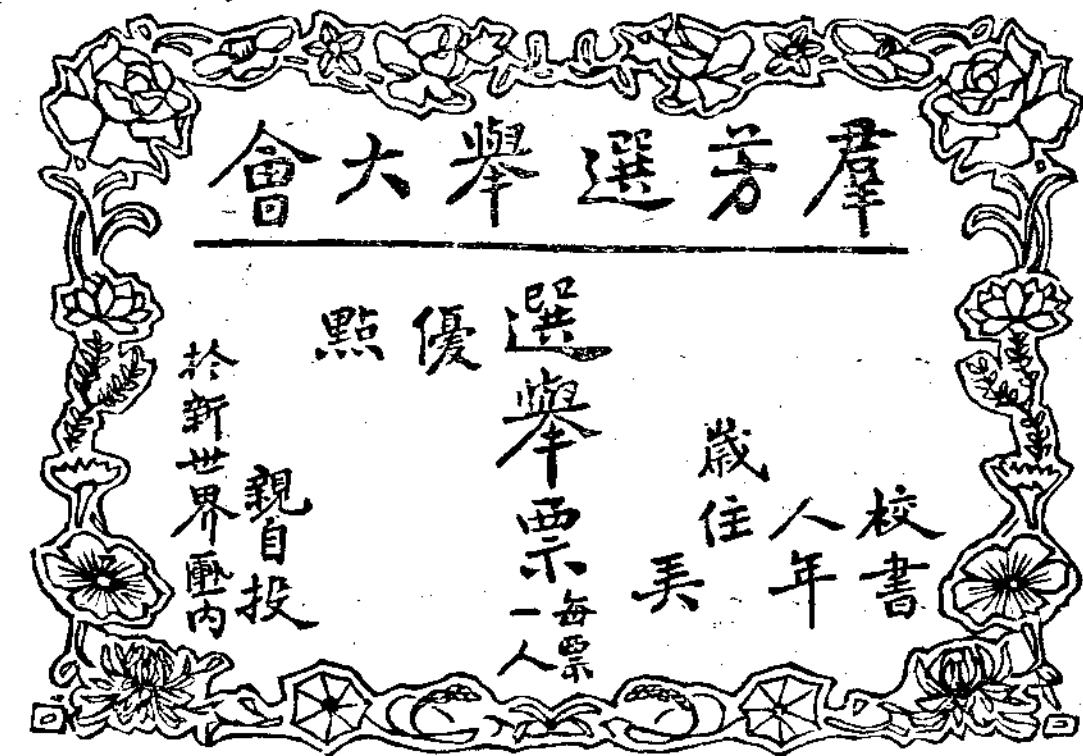 羣芳選舉大會
校書
人年
歲住
選舉票
每票
一人
優點
親自投
於新世界匭内